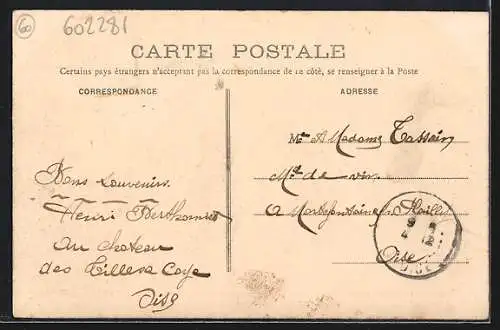 60
602281
CARTE POSTALE
Certains pays étrangers n'acceptant pas la correspondance de ce côté, se renseigner à la Poste
CORRESPONDANCE
ADRESSE
M A Madame Tassain
Md de vin
a Mortefontaine
Oise
Bons Souvenirs
Henri
au chateau
des Tillers Coye
Oise